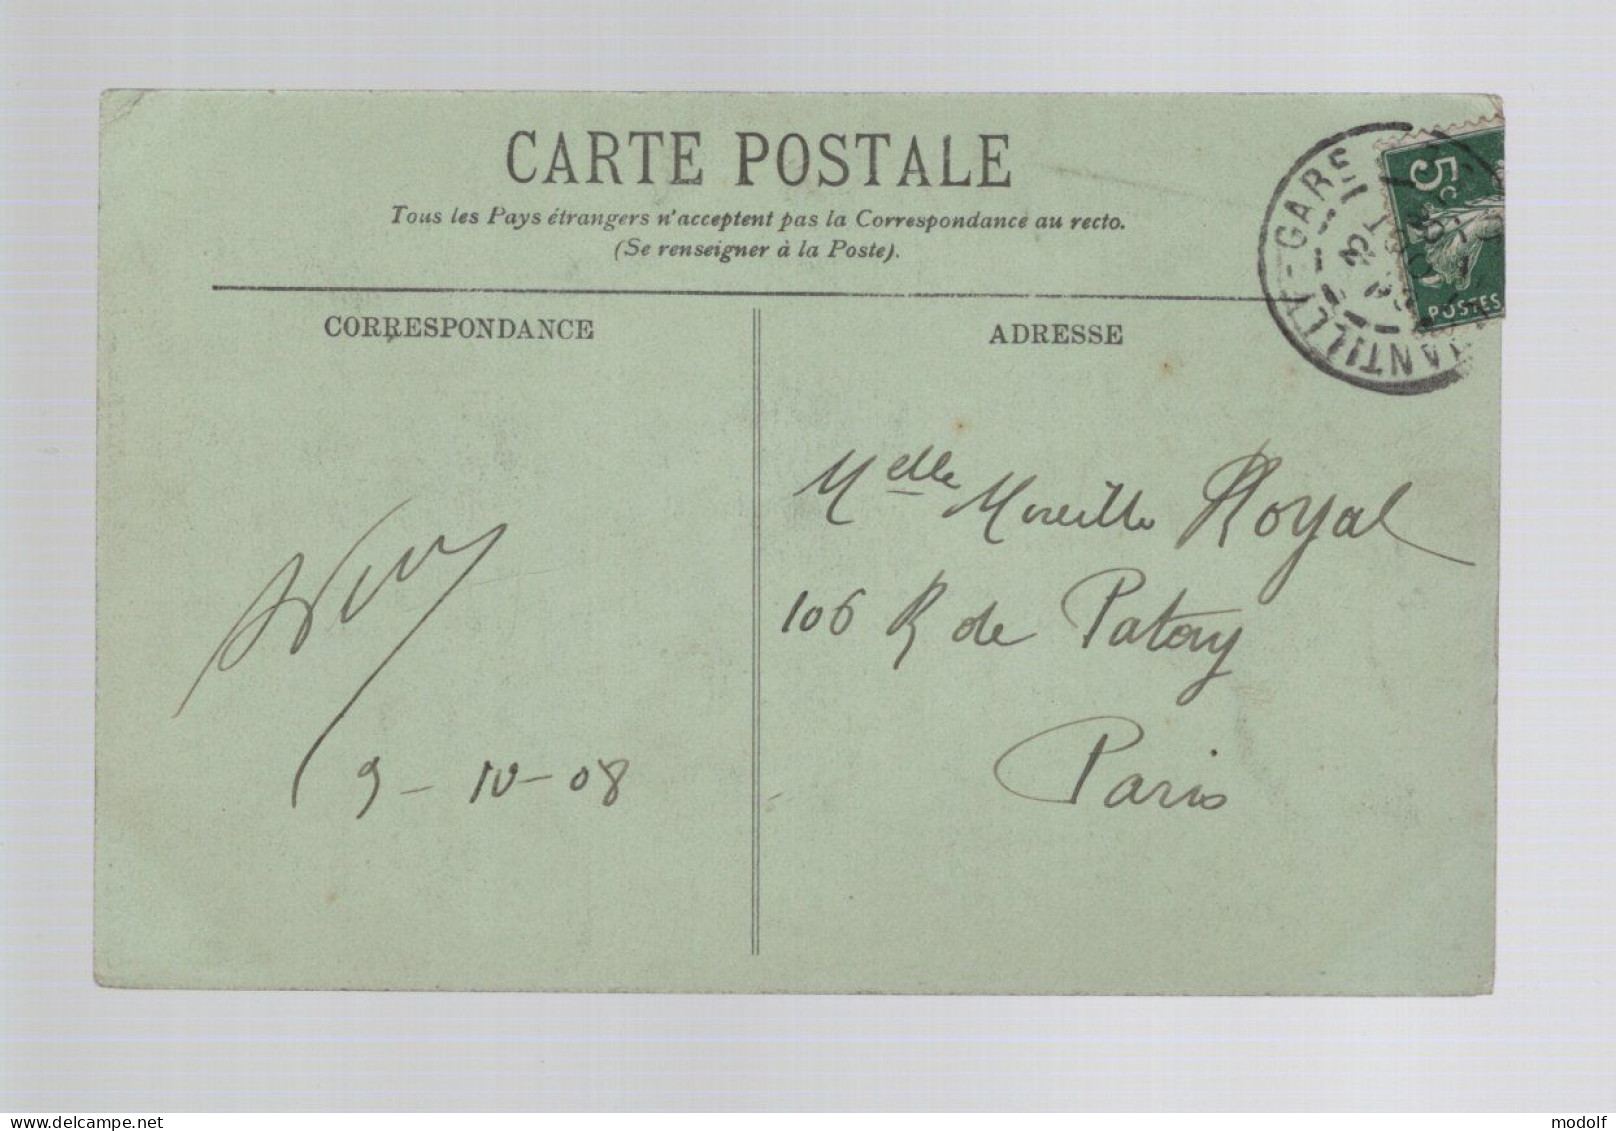 CARTE POSTALE
Tous les Pays étrangers n'acceptent pas la Correspondance au recto.
(Se renseigner à la Poste).
CORRESPONDANCE
ADRESSE
5c
POSTES
ANTILLY-GARE
Melle Mireille Royal
106 R de Patay
Paris
9-10-08
modolf